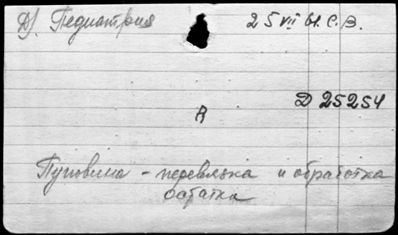 Д). Педиатрия 25 VII 61. С.В.
Д 25254
А
Пуповина - перевязка и обработка
остатка